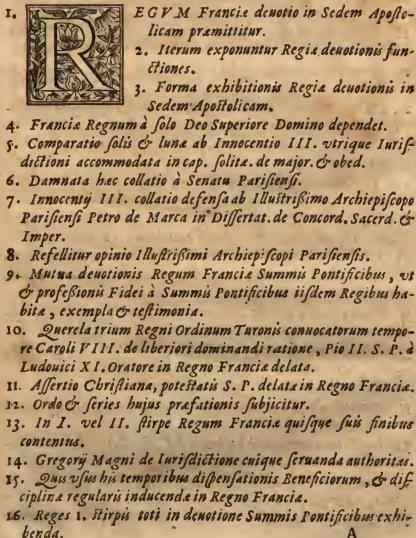 1. REGVM Franciæ deuotio in Sedem Aposto-
licam præmittitur.
2. Iterum exponuntur Regiæ deuotionis fun-
ctiones.
3. Forma exhibitionis Regiæ deuotionis in
Sedem Apostolicam.
4. Franciæ Regnum à solo Deo Superiore Domino dependet.
5. Comparatio solis & lunæ ab Innocentio III. vtrique Iurif-
dictioni accommodata in cap. solitæ. de major. & obed.
6. Damnata hæc collatio à Senatu Parisiensi.
7. Innocentij III. collatio defensa ab Illustrißimo Archiepiscopo
Parisiensi Petro de Marca in Dissertat. de Concord. Sacerd. &
Imper.
8. Refellitur opinio Illustrißimi Archiepiscopi Parisiensis.
9. Mutua deuotionis Regum Franciæ Summis Pontificibus, vt
& profeßionis Fidei à Summis Pontificibus iisdem Regibus ha-
bitæ, exempla & testimonia.
10. Querela trium Regni Ordinum Turonis conuocatorum tempo-
re Caroli VIII. de liberiori dominandi ratione, Pio II. S. P. à
Ludouici XI. Oratore in Regno Franciæ delata.
11. Assertio Christiana, potestatis S. P. delatæ in Regno Franciæ.
12. Ordo & series hujus præfationis subjicitur.
13. In I. vel II. stirpe Regum Franciæ quisque suis finibus
contentus.
14. Gregorij Magni de Iurisdictione cuique seruanda authoritas.
15. Quis vsus his temporibus dispensationis Beneficiorum, & dis-
ciplinæ regularis inducendæ in Regno Franciæ.
16. Reges 1. stirpis toti in deuotione Summis Pontificibus exhi-
benda. A